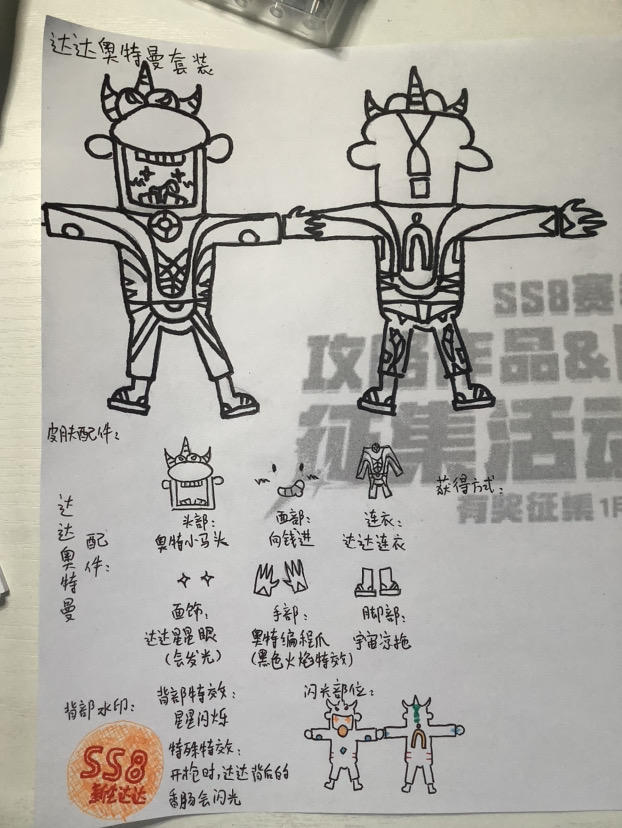 达达奥特曼套装
SS8赛
攻略作品&
征集活动
有奖征集 1月
皮肤配件:
获得方式:
达达奥特曼
配件:
头部:
奥特小马头
面部:
向钱进
连衣:
达达连衣
面饰:
达达星星眼
(会发光)
手部:
奥特编程爪
(黑色火焰特效)
脚部:
宇宙凉拖
背部水印:
SS8
新生达达
背部特效:
星星闪烁
特殊特效:
开枪时,达达背后的
香肠会闪光
闪光部位: